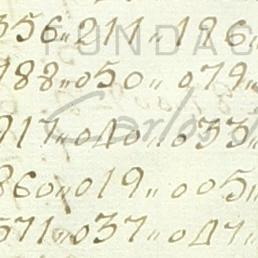 356,,211,,196,,
188,,050,,079,,
917,,010,,033,,
860,,019,,005,,
571,,037,,017,,
FUNDAC
Carlos